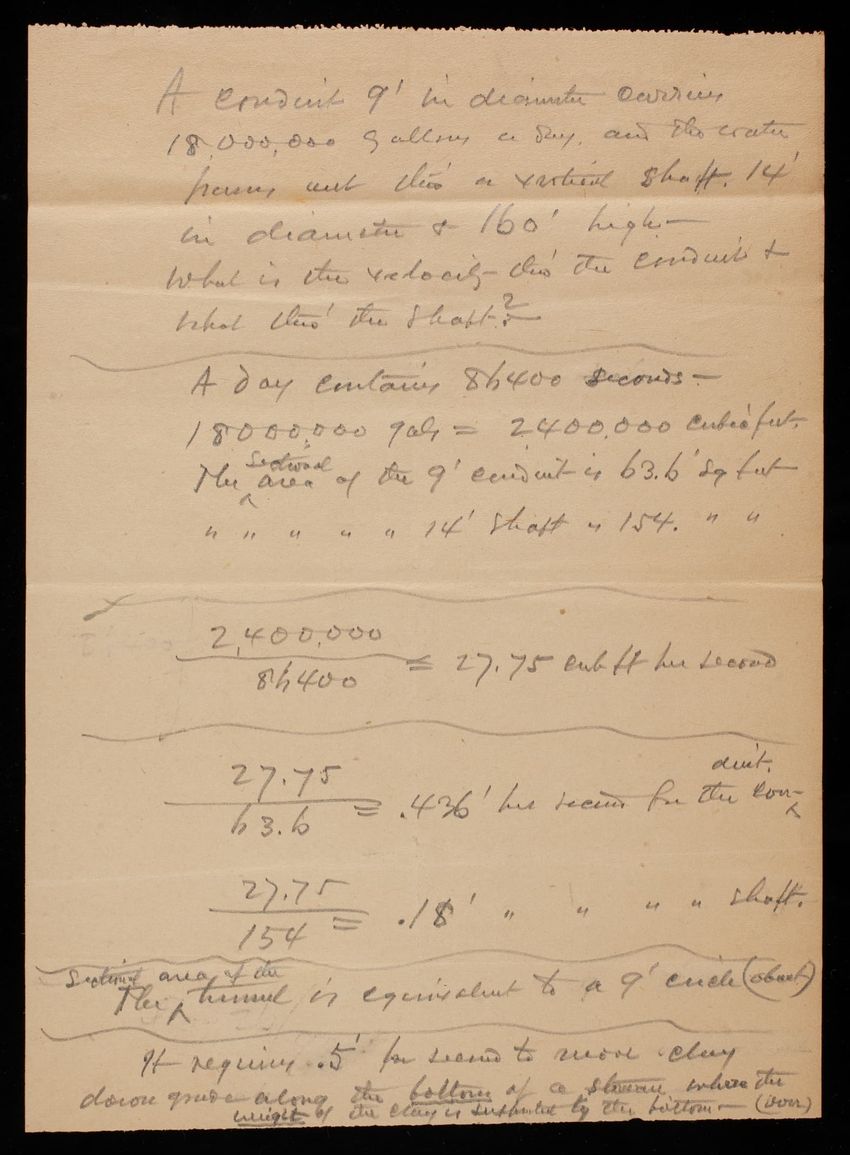 A conduit 9' in diameter carries
18,000,000 gallons a day, and the water
passes out thro' a vertical shaft. 14'
in diameter & 160' high —
What is the velocity thro' the conduit &
what thro' the shaft? —
A day contains 86400 seconds —
18000,000 gals = 2400,000 cubic feet.
The sectional area of the 9' conduit is 63.6' sq feet
" " " " " 14' shaft " 154. " "
2,400,000
86400
= 27.75 cub ft per second
27.75
63.6
= .436' per second for the conduit.
27.75
154
= .18' " " " " shaft.
The sectional area of the tunnel is equivalent to a 9' circle (about)
It requires .5' per second to move clay
down grade along the bottom of a stream where the
weight of the clay is supported by the bottom — (over)